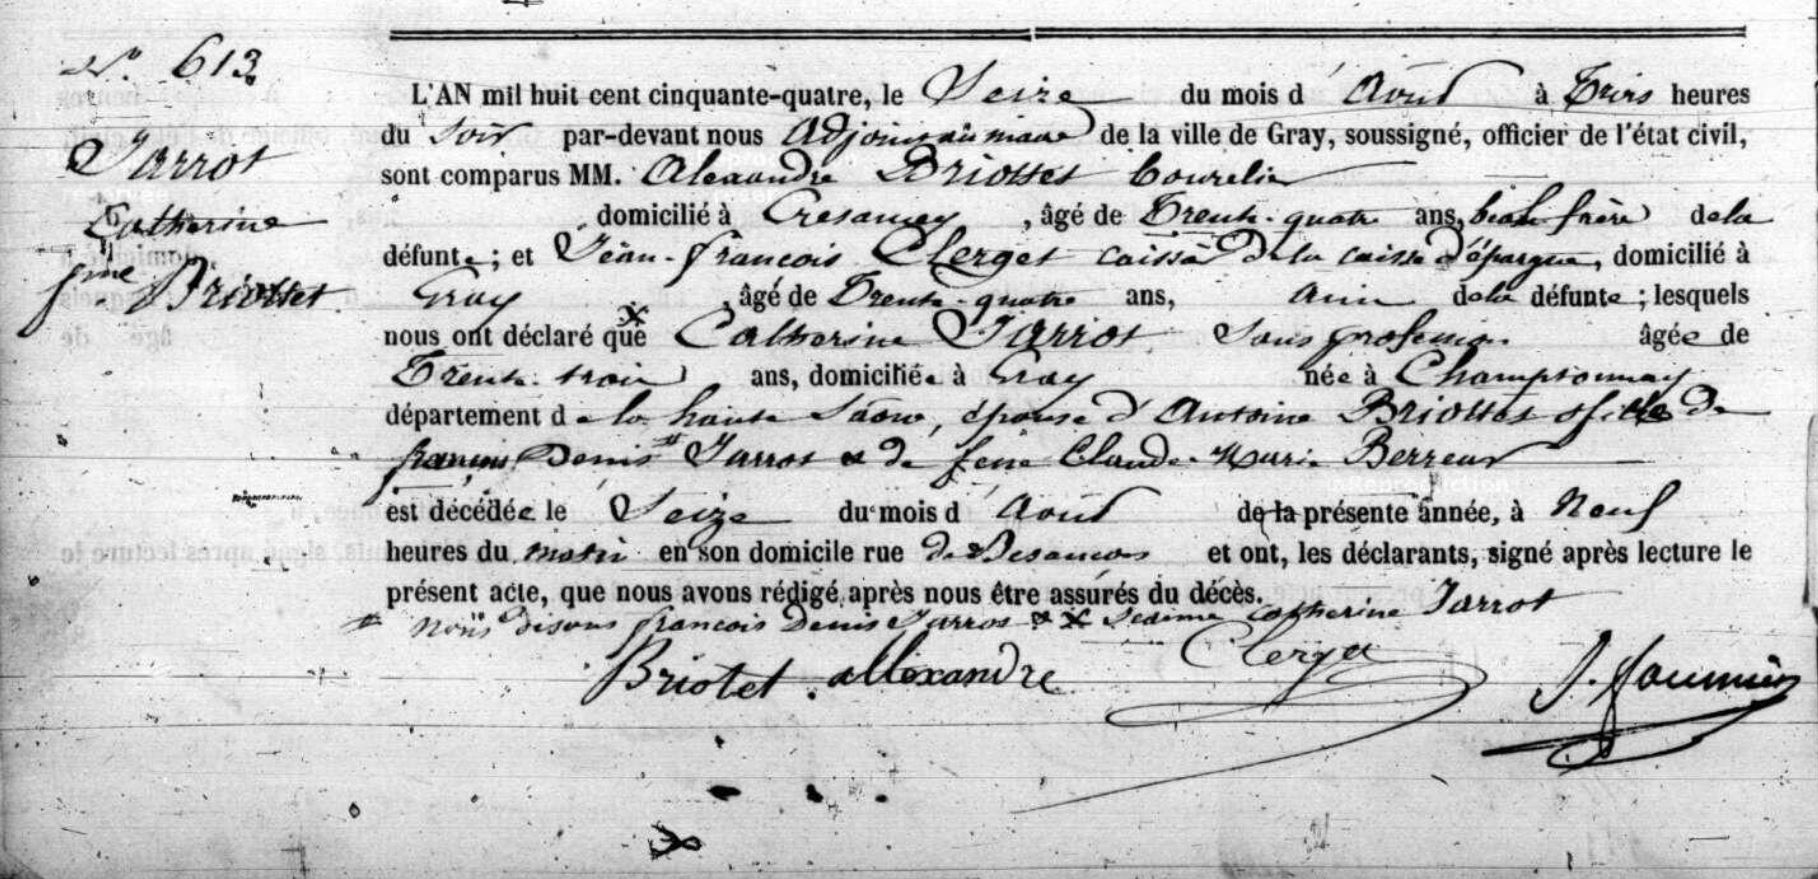 N° 613
Jarrot
Catherine
fme Briottet
L'AN mil huit cent cinquante-quatre, le Seize du mois d'Août à Trois heures
du Soir par-devant nous Adjoint au maire de la ville de Gray, soussigné, officier de l'état civil,
sont comparus MM. Alexandre Briottet bourelier
domicilié à Cresancey, âgé de Trente-quatre ans, beau frère dela
défunte; et Jean-françois Clerget caissier dela caisse d'épargne, domicilié à
Gray, âgé de Trente-quatre ans, ami dela défunte; lesquels
nous ont déclaré que Catherine Jarrot Sans profession âgée de
Trente trois ans, domiciliée à Gray née à Champtonnay
département de la haute Saône, épouse d'Antoine Briottet & fille de
françois Denis # Jarrot & de feue Claude Marie Berreur
est décédée le Seize du mois d'Août de la présente année, à Neuf
heures du matin en son domicile rue de Besançon et ont, les déclarants, signé après lecture le
présent acte, que nous avons rédigé après nous être assurés du décès.
# Nous disons françois Denis Jarrot & X Catherine Jarrot
Briotet allexandre Clerget